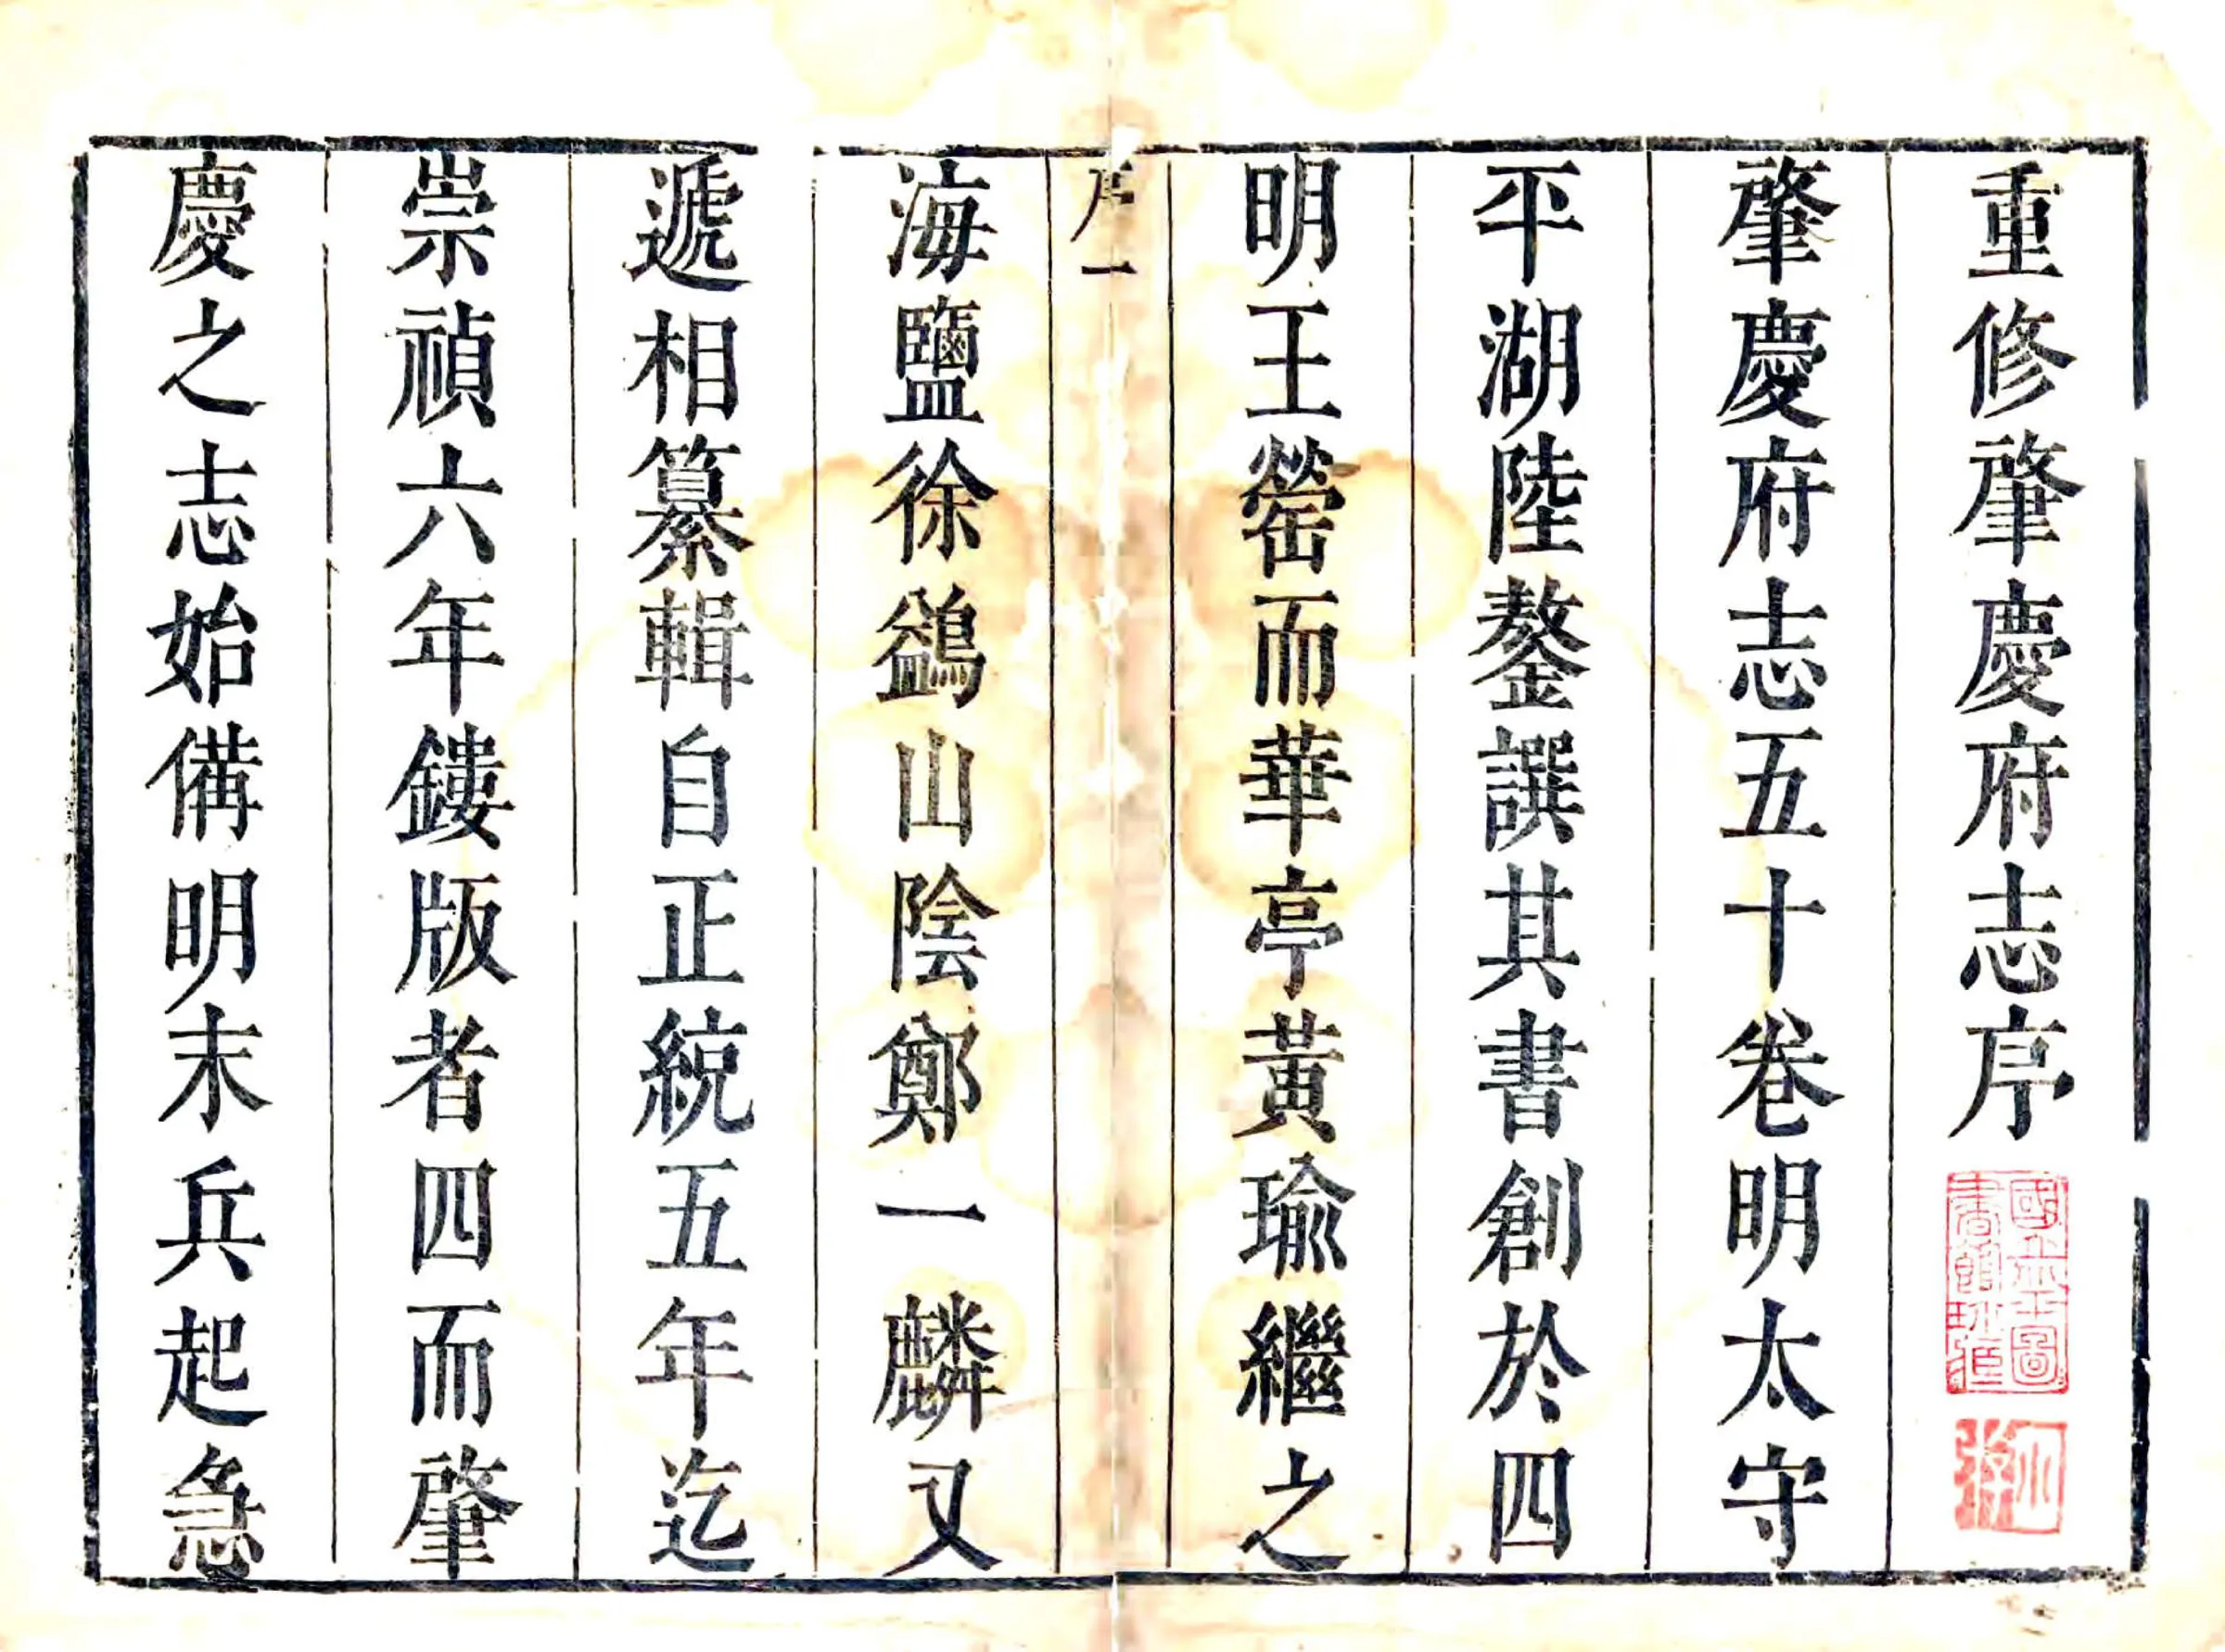 重修肇慶府志序
國立北平圖書館珍藏
肇慶府志五十卷明太守
平湖陸鏊譔其書創於四
明王罃而華亭黃瑜繼之
序一
海鹽徐鷁山陰鄭一麟又
遞相纂輯自正統五年迄
崇禎六年鏤版者四而肇
慶之志始備明末兵起急